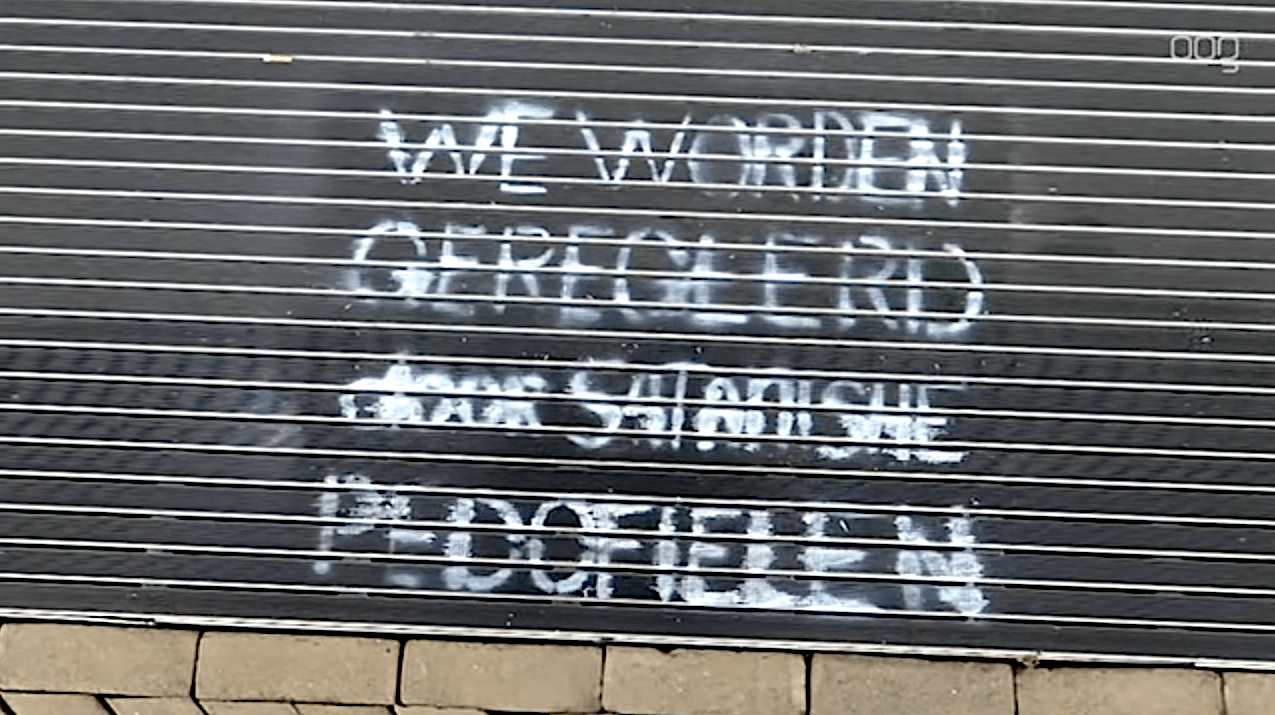 OOG
WE WORDEN
GEREGLERD
door SATANISHE
PEDOFIELEN